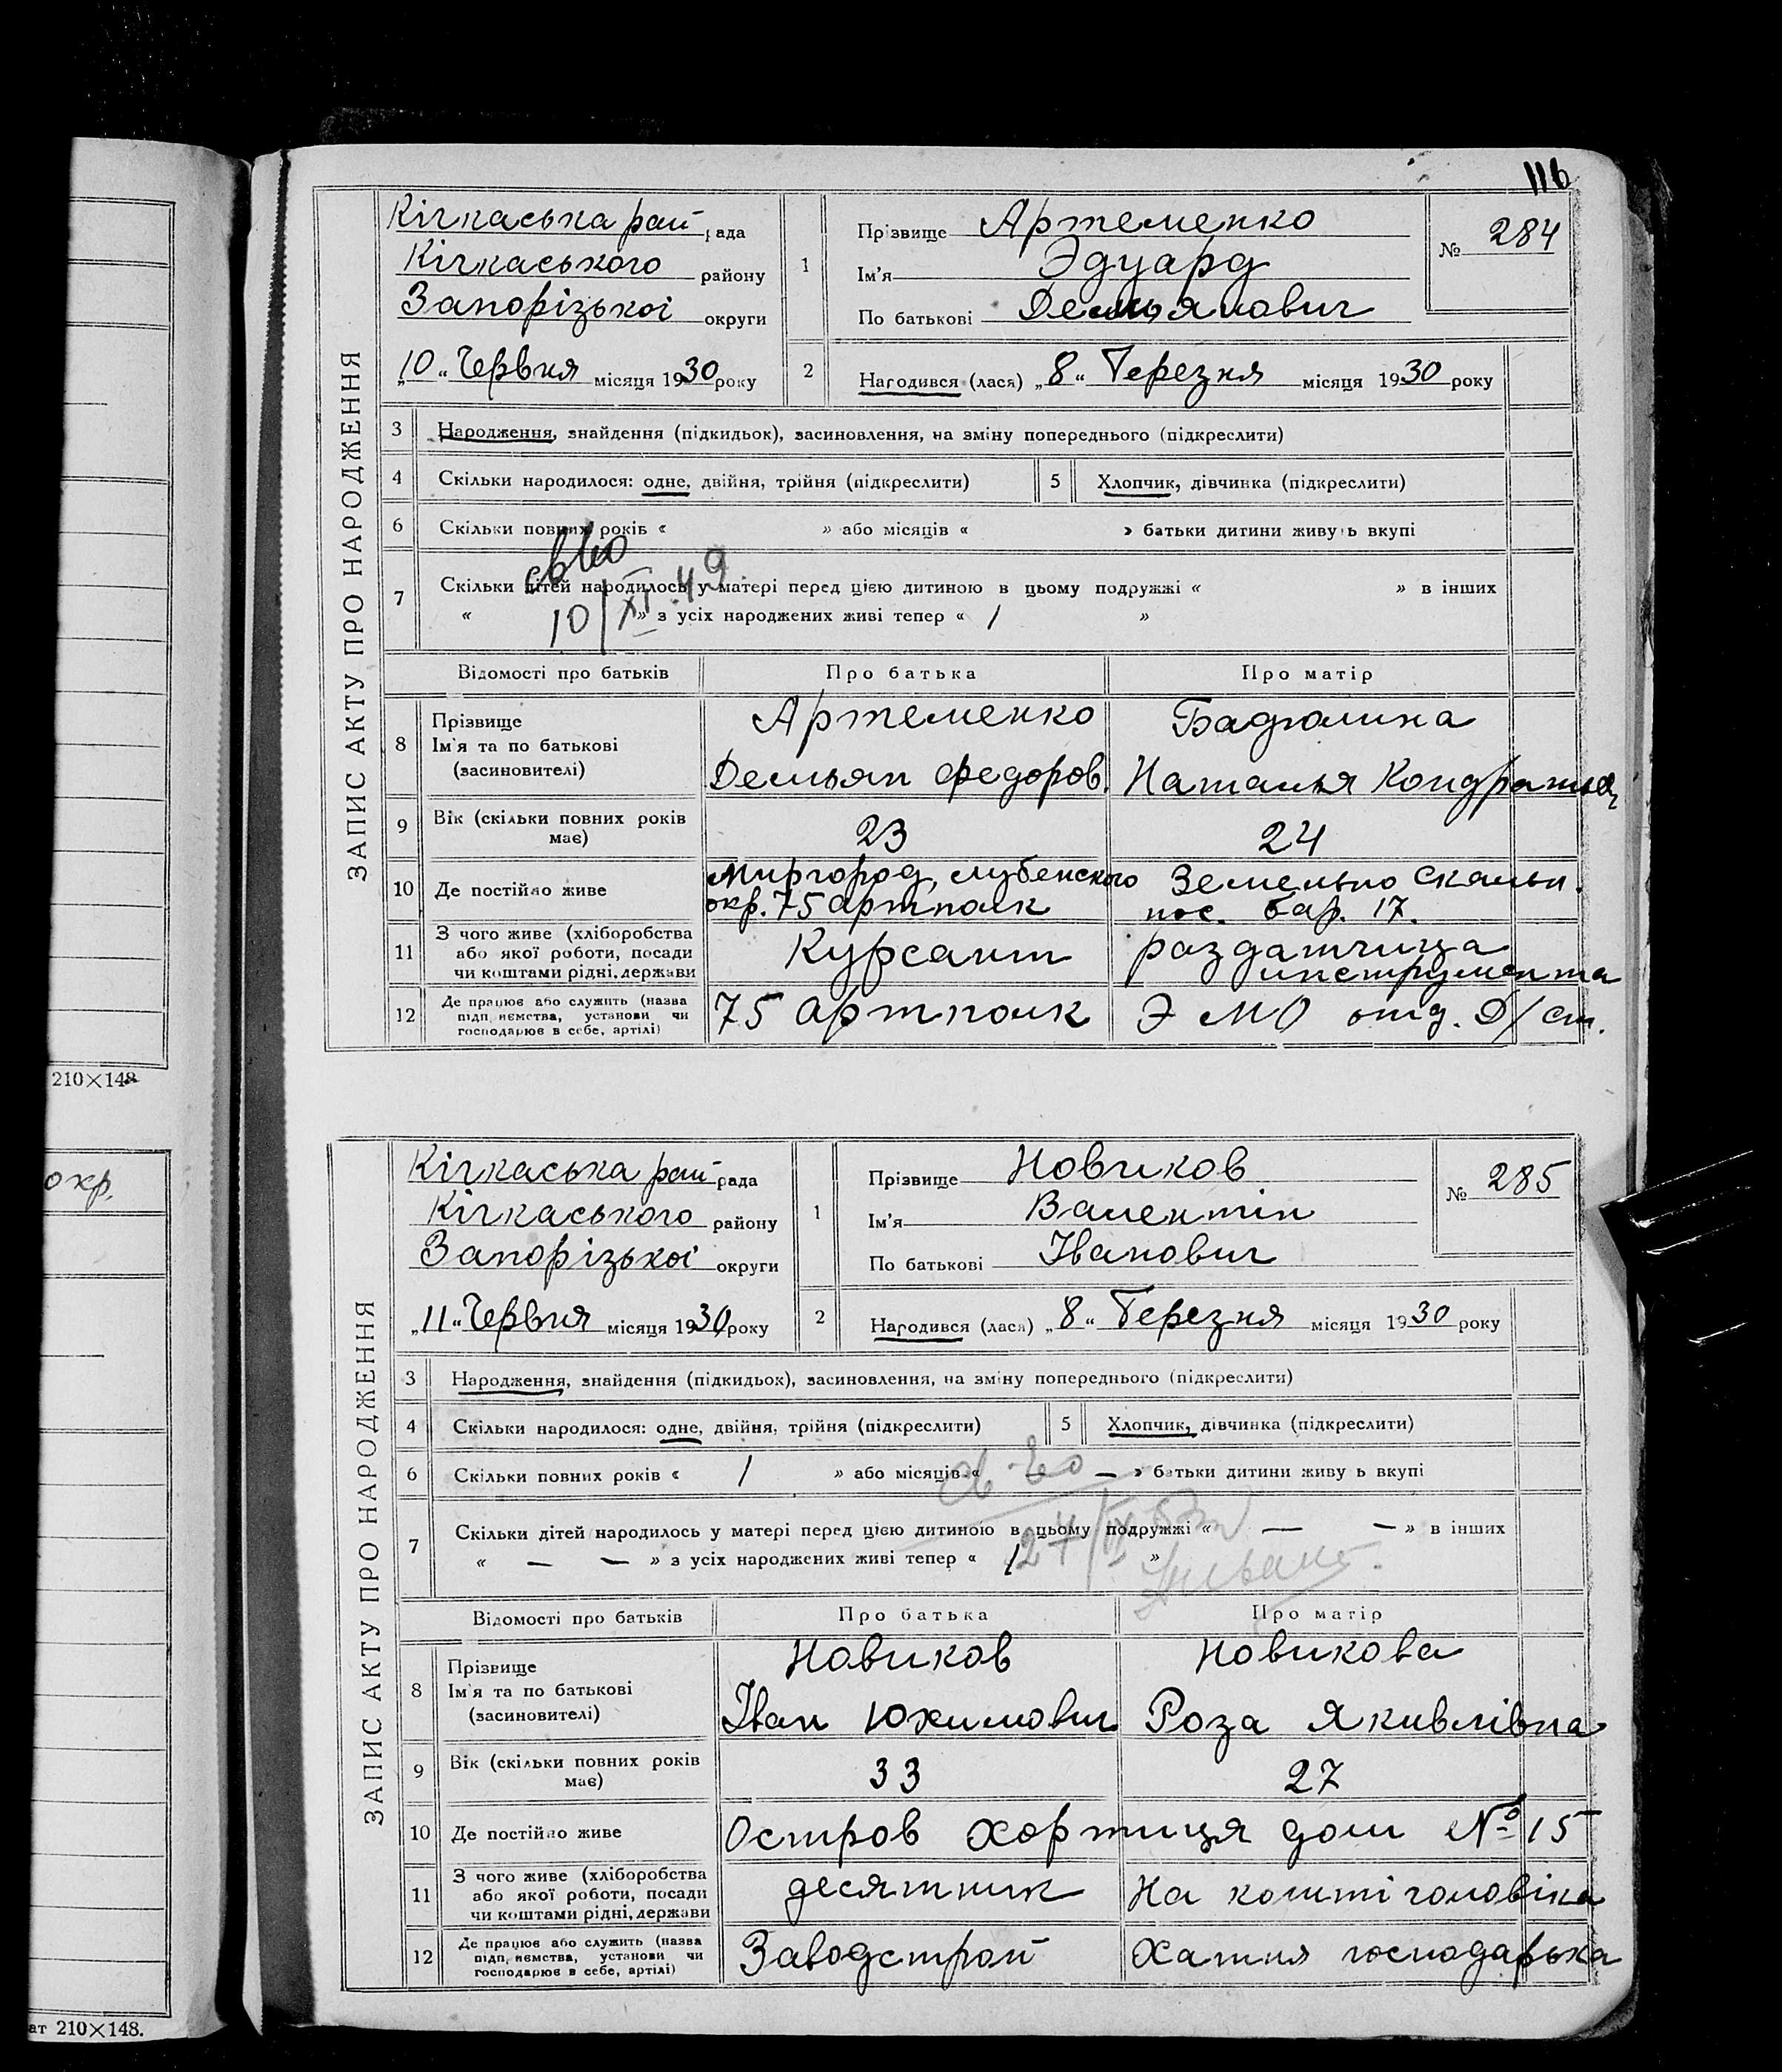 116
ЗАПИС АКТУ ПРО НАРОДЖЕННЯ
Кічкаська рай рада
Кічкаського району
Запорізької округи
„10“ Червня місяця 1930 року
1 Прізвище Артеменко
Ім'я Эдуард
По батькові Демьянович
№ 284
2 Народився (лася) „8“ Березня місяця 1930 року
3 Народження, знайдення (підкидьок), засиновлення, на зміну попереднього (підкреслити)
4 Скільки народилося: одне, двійня, трійня (підкреслити) 5 Хлопчик, дівчинка (підкреслити)
6 Скільки повних років « » або місяців « » батьки дитини живуть вкупі
св-во
10/XI 49
7 Скільки дітей народилось у матері перед цією дитиною в цьому подружжі « » в інших
« » з усіх народжених живі тепер « 1 »
Відомості про батьків Про батька Про матір
8 Прізвище Артеменко Бадюлина
Ім'я та по батькові
(засиновителі) Демьян Федоров. Наталья Кондратьев
9 Вік (скільки повних років має) 23 24
10 Де постійно живе Миргород, лубенского Земельно Скальн.
окр. 75 артполк пос. бар. 17.
11 З чого живе (хліборобства
або якої роботи, посади
чи коштами рідні, держави Курсант раздатчица
инструмента
12 Де працює або служить (назва
підприємства, установи чи
господарює в себе, артілі) 75 Артполк Э МО отд. Д/ст.
210×148
окр.
ЗАПИС АКТУ ПРО НАРОДЖЕННЯ
Кічкаська рай рада
Кічкаського району
Запорізької округи
„11“ Червня місяця 1930 року
1 Прізвище Новиков
Ім'я Валентін
По батькові Іванович
№ 285
2 Народився (лася) „8“ Березня місяця 1930 року
3 Народження, знайдення (підкидьок), засиновлення, на зміну попереднього (підкреслити)
4 Скільки народилося: одне, двійня, трійня (підкреслити) 5 Хлопчик, дівчинка (підкреслити)
6 Скільки повних років « 1 » або місяців « — — » батьки дитини живу ь вкупі
св-во
7 Скільки дітей народилось у матері перед цією дитиною в цьому подружжі « — — » в інших
« — — » з усіх народжених живі тепер « 1 »
27/IX
Відомості про батьків Про батька Про матір
8 Прізвище Новиков Новикова
Ім'я та по батькові
(засиновителі) Іван Юхимович Роза Якивлівна
9 Вік (скільки повних років має) 33 27
10 Де постійно живе Остров Хортиця дом № 15
11 З чого живе (хліборобства
або якої роботи, посади
чи коштами рідні, держави десятник На кошті чоловіка
12 Де працює або служить (назва
підприємства, установи чи
господарює в себе, артілі) Заводстрой Хатня господарька
ат 210×148.